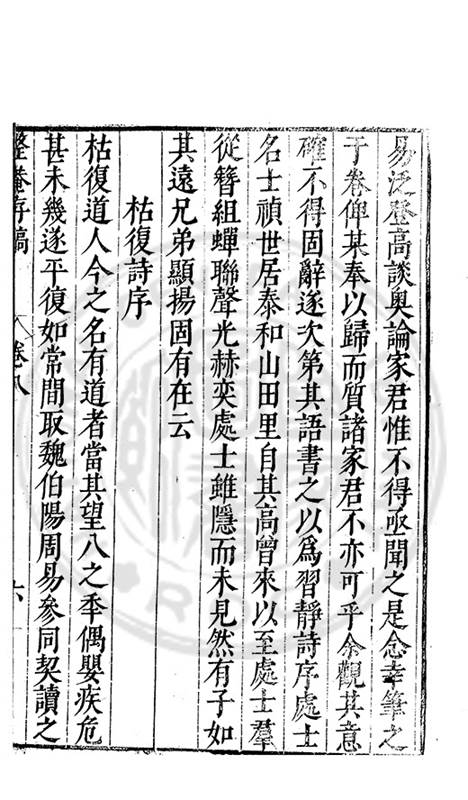 易泛登高談奧論家君惟不得亟聞之是念幸筆之
于卷俾某奉以歸而質諸家君不亦可乎余觀其意
確不得固辭遂次第其語書之以爲習靜詩序處士
名士禎世居泰和山田里自其高曾來以至處士羣
從簪組蟬聯聲光赫奕處士雖隱而未見然有子如
其遠兄弟顯揚固有在云
枯復詩序
枯復道人今之名有道者當其望八之秊偶嬰疾危
甚未幾遂平復如常間取魏伯陽周易參同契讀之
整菴存稿 卷八 六